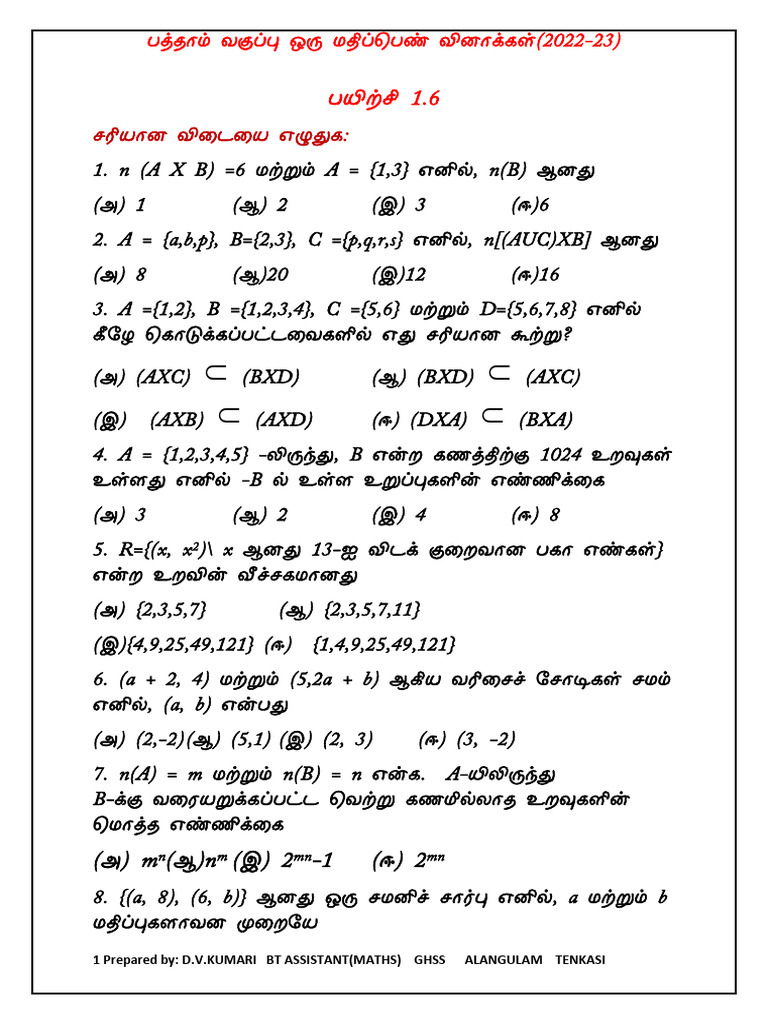 பத்தாம் வகுப்பு ஒரு மதிப்பெண் வினாக்கள்(2022-23)
பயிற்சி 1.6
சரியான விடையை எழுதுக:
1. n (A X B) =6 மற்றும் A = {1,3} எனில், n(B) ஆனது
(அ) 1 (ஆ) 2 (இ) 3 (ஈ)6
2. A = {a,b,p}, B={2,3}, C ={p,q,r,s} எனில், n[(AUC)XB] ஆனது
(அ) 8 (ஆ)20 (இ)12 (ஈ)16
3. A ={1,2}, B ={1,2,3,4}, C ={5,6} மற்றும் D={5,6,7,8} எனில்
கீழே கொடுக்கப்பட்டவைகளில் எது சரியான கூற்று?
(அ) (AXC) ⊂ (BXD) (ஆ) (BXD) ⊂ (AXC)
(இ) (AXB) ⊂ (AXD) (ஈ) (DXA) ⊂ (BXA)
4. A = {1,2,3,4,5} -லிருந்து, B என்ற கணத்திற்கு 1024 உறவுகள்
உள்ளது எனில் -B ல் உள்ள உறுப்புகளின் எண்ணிக்கை
(அ) 3 (ஆ) 2 (இ) 4 (ஈ) 8
5. R={(x, x²)\ x ஆனது 13-ஐ விடக் குறைவான பகா எண்கள்}
என்ற உறவின் வீச்சகமானது
(அ) {2,3,5,7} (ஆ) {2,3,5,7,11}
(இ){4,9,25,49,121} (ஈ) {1,4,9,25,49,121}
6. (a + 2, 4) மற்றும் (5,2a + b) ஆகிய வரிசைச் சோடிகள் சமம்
எனில், (a, b) என்பது
(அ) (2,-2)(ஆ) (5,1) (இ) (2, 3) (ஈ) (3, -2)
7. n(A) = m மற்றும் n(B) = n என்க. A-யிலிருந்து
B-க்கு வரையறுக்கப்பட்ட வெற்று கணமில்லாத உறவுகளின்
மொத்த எண்ணிக்கை
(அ) mⁿ(ஆ)nᵐ (இ) 2ᵐⁿ-1 (ஈ) 2ᵐⁿ
8. {(a, 8), (6, b)} ஆனது ஒரு சமனிச் சார்பு எனில், a மற்றும் b
மதிப்புகளாவன முறையே
1 Prepared by: D.V.KUMARI BT ASSISTANT(MATHS) GHSS ALANGULAM TENKASI